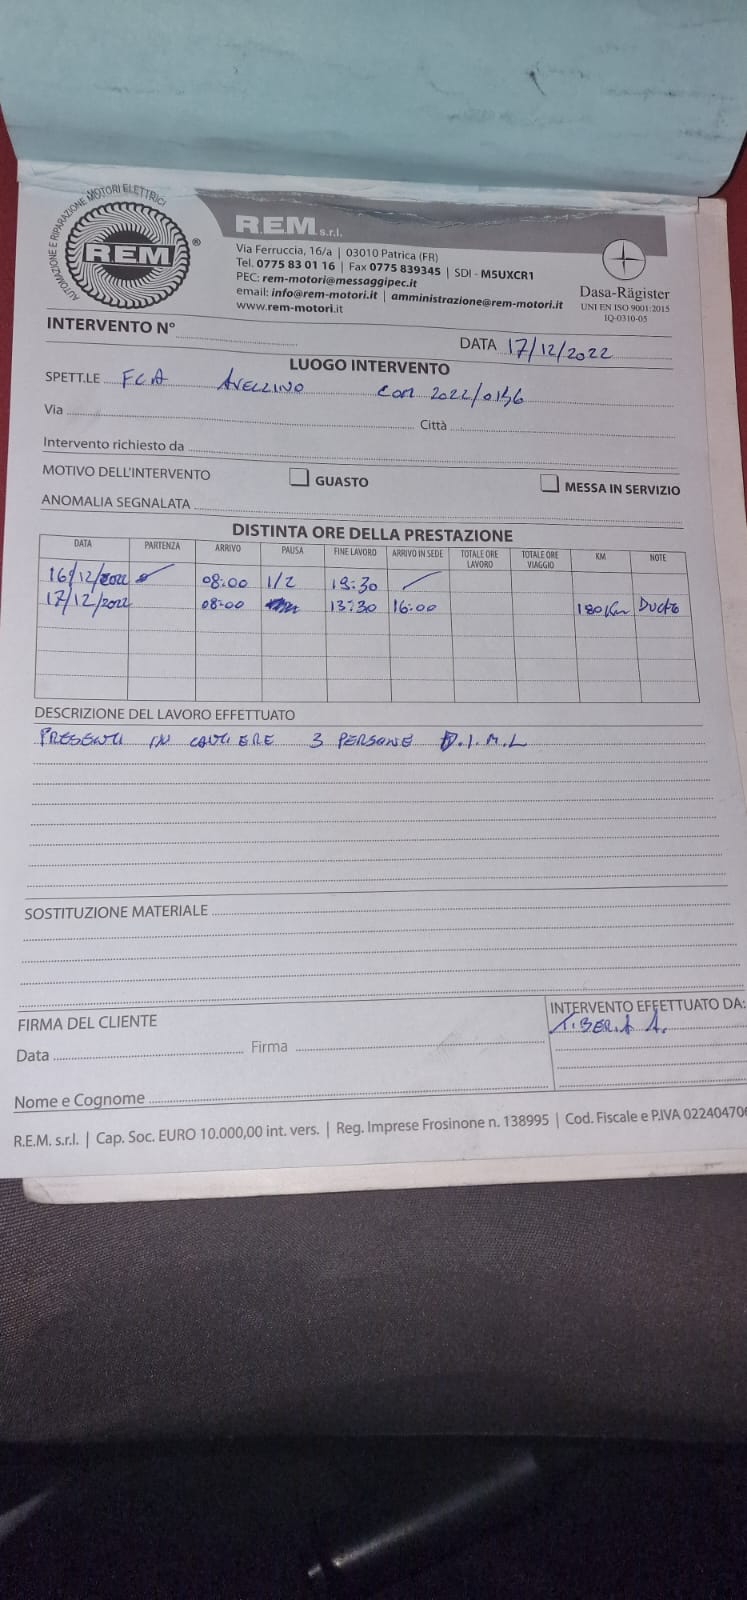 AUTOMAZIONE E RIPARAZIONE MOTORI ELETTRICI
REM ®
R.E.M. s.r.l.
Via Ferruccia, 16/a | 03010 Patrica (FR)
Tel. 0775 83 01 16 | Fax 0775 839345 | SDI - M5UXCR1
PEC: rem-motori@messaggipec.it
email: info@rem-motori.it | amministrazione@rem-motori.it
www.rem-motori.it
Dasa-Rägister
UNI EN ISO 9001:2015
IQ-0310-05
INTERVENTO N°
DATA 17/12/2022
LUOGO INTERVENTO
SPETT.LE FCA AVELLINO COM 2022/0156
Via Città
Intervento richiesto da
MOTIVO DELL'INTERVENTO GUASTO MESSA IN SERVIZIO
ANOMALIA SEGNALATA
DISTINTA ORE DELLA PRESTAZIONE
DATA PARTENZA ARRIVO PAUSA FINE LAVORO ARRIVO IN SEDE TOTALE ORE LAVORO TOTALE ORE VIAGGIO KM NOTE
16/12/2022 08:00 1/2 19:30
17/12/2022 08:00 13:30 16:00 180 Km Ducato
DESCRIZIONE DEL LAVORO EFFETTUATO
PRESENTI IN CANTIERE 3 PERSONE D.I.M.L
SOSTITUZIONE MATERIALE
FIRMA DEL CLIENTE
Data Firma
Nome e Cognome
INTERVENTO EFFETTUATO DA:
TIBERIA A.
R.E.M. s.r.l. | Cap. Soc. EURO 10.000,00 int. vers. | Reg. Imprese Frosinone n. 138995 | Cod. Fiscale e P.IVA 02240470